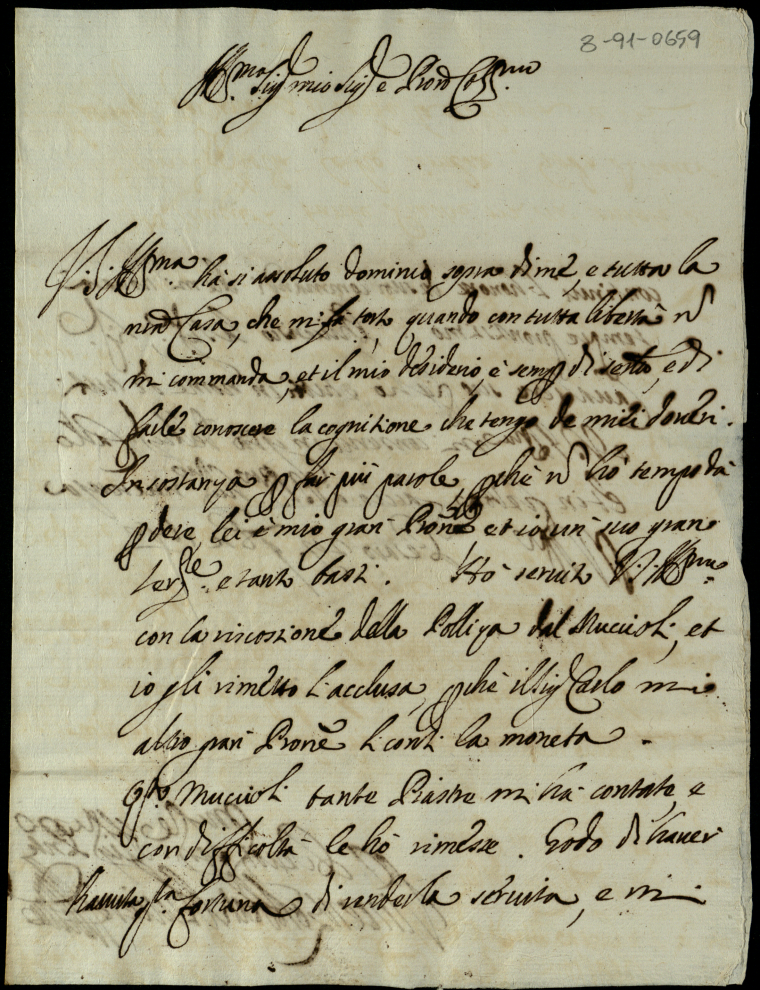 3-91-0659
Ill.mo Sig.r mio Sig.r e Pron Coll.mo
V.S. Ill.ma ha si assoluto dominio sopra di me, e tutta la
mia Casa, che mi fà torto quando con tutta libertà nō
mi commanda, et il mio desiderio, è semp di ser, e di
farle conoscere la cognitione che tengo de miei doveri.
In sostanza p far più parole, pchè nō hò tempo da
pdere, lei è mio gran Prone et io un suo gran
ser.re e tanto basti. Hò servito V.S. Ill.ma
con la riscossione della Polliza dal Muccioli, et
io gli rimetto l'acclusa, pchè il Sig Carlo mio
altro gran Prone li conti la moneta.
Q.to Muccioli tante Piastre mi hà contate, e
con difficoltà le hò rimesse. Godo di haver
havuta q.ta fortuna di renderla servita, e mi